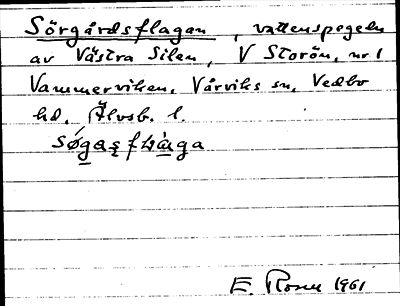 Sörgårdsflagan, vattenspegeln
av Västra Silen, V Storön, nr 1
Vammerviken. Vårviks sn, Vedbo
hd. Älvsb. l.
E. Rosen 1961